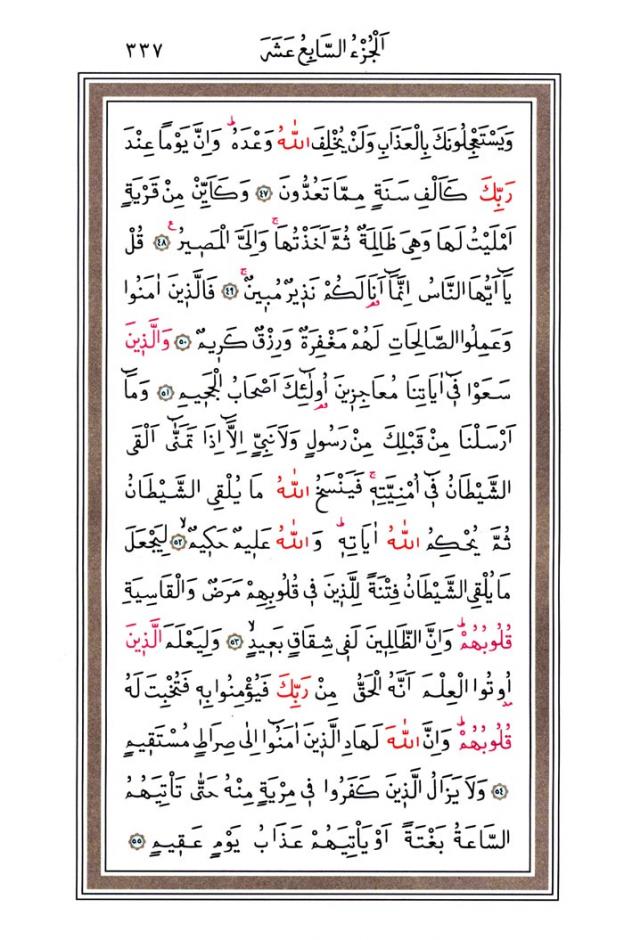 اَلْجُزْءُ السَّابِعُ عَشَرَ ٣٣٧
وَيَسْتَعْجِلُونَكَ بِالْعَذَابِ وَلَنْ يُخْلِفَ اللّٰهُ وَعْدَهُۜ وَاِنَّ يَوْماً عِنْدَ
رَبِّكَ كَاَلْفِ سَنَةٍ مِمَّا تَعُدُّونَ ﴿٤٧﴾ وَكَاَيِّنْ مِنْ قَرْيَةٍ
اَمْلَيْتُ لَهَا وَهِيَ ظَالِمَةٌ ثُمَّ اَخَذْتُهَاۚ وَاِلَيَّ الْمَص۪يرُ۟ ﴿٤٨﴾ قُلْ
يَٓا اَيُّهَا النَّاسُ اِنَّمَٓا اَنَا۬ لَكُمْ نَذ۪يرٌ مُب۪ينٌۚ ﴿٤٩﴾ فَالَّذ۪ينَ اٰمَنُوا
وَعَمِلُوا الصَّالِحَاتِ لَهُمْ مَغْفِرَةٌ وَرِزْقٌ كَر۪يمٌ ﴿٥٠﴾ وَالَّذ۪ينَ
سَعَوْا ف۪ٓي اٰيَاتِنَا مُعَاجِز۪ينَ اُو۬لٰٓئِكَ اَصْحَابُ الْجَح۪يمِ ﴿٥١﴾ وَمَٓا
اَرْسَلْنَا مِنْ قَبْلِكَ مِنْ رَسُولٍ وَلَا نَبِيٍّ اِلَّٓا اِذَا تَمَنّٰٓى اَلْقَى
الشَّيْطَانُ ف۪ٓي اُمْنِيَّتِه۪ۚ فَيَنْسَخُ اللّٰهُ مَا يُلْقِي الشَّيْطَانُ
ثُمَّ يُحْكِمُ اللّٰهُ اٰيَاتِه۪ۜ وَاللّٰهُ عَل۪يمٌ حَك۪يمٌۙ ﴿٥٢﴾ لِيَجْعَلَ
مَا يُلْقِي الشَّيْطَانُ فِتْنَةً لِلَّذ۪ينَ ف۪ي قُلُوبِهِمْ مَرَضٌ وَالْقَاسِيَةِ
قُلُوبُهُمْۜ وَاِنَّ الظَّالِم۪ينَ لَف۪ي شِقَاقٍ بَع۪يدٍۙ ﴿٥٣﴾ وَلِيَعْلَمَ الَّذ۪ينَ
اُو۫تُوا الْعِلْمَ اَنَّهُ الْحَقُّ مِنْ رَبِّكَ فَيُؤْمِنُوا بِه۪ فَتُخْبِتَ لَهُ
قُلُوبُهُمْۜ وَاِنَّ اللّٰهَ لَهَادِ الَّذ۪ينَ اٰمَنُٓوا اِلٰى صِرَاطٍ مُسْتَق۪يمٍ
﴿٥٤﴾ وَلَا يَزَالُ الَّذ۪ينَ كَفَرُوا ف۪ي مِرْيَةٍ مِنْهُ حَتّٰى تَأْتِيَهُمُ
السَّاعَةُ بَغْتَةً اَوْ يَأْتِيَهُمْ عَذَابُ يَوْمٍ عَق۪يمٍ ﴿٥٥﴾